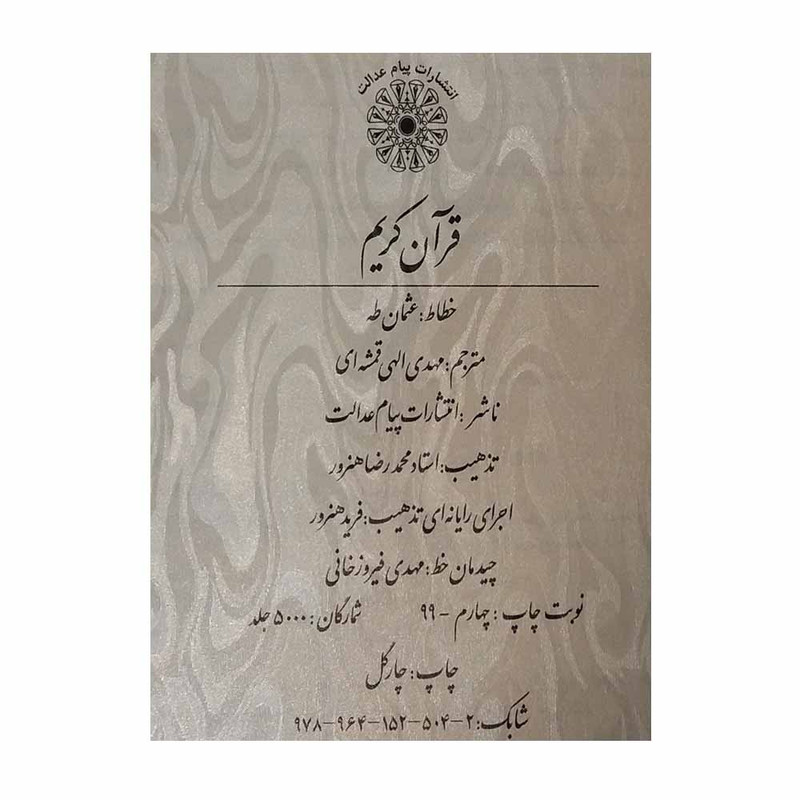 انتشارات پیام عدالت
قرآن کریم
خطاط: عثمان طه
مترجم: مهدی الهی قمشه ای
ناشر: انتشارات پیام عدالت
تذهیب: استاد محمد رضا هنرور
اجرای رایانه ای تذهیب: فرید هنرور
چیدمان خط: مهدی فیروزخانی
نوبت چاپ: چهارم - ۹۹ شمارگان: ۵۰۰۰ جلد
چاپ: چارگل
شابک: ۲-۵۰۴-۱۵۲-۹۶۴-۹۷۸